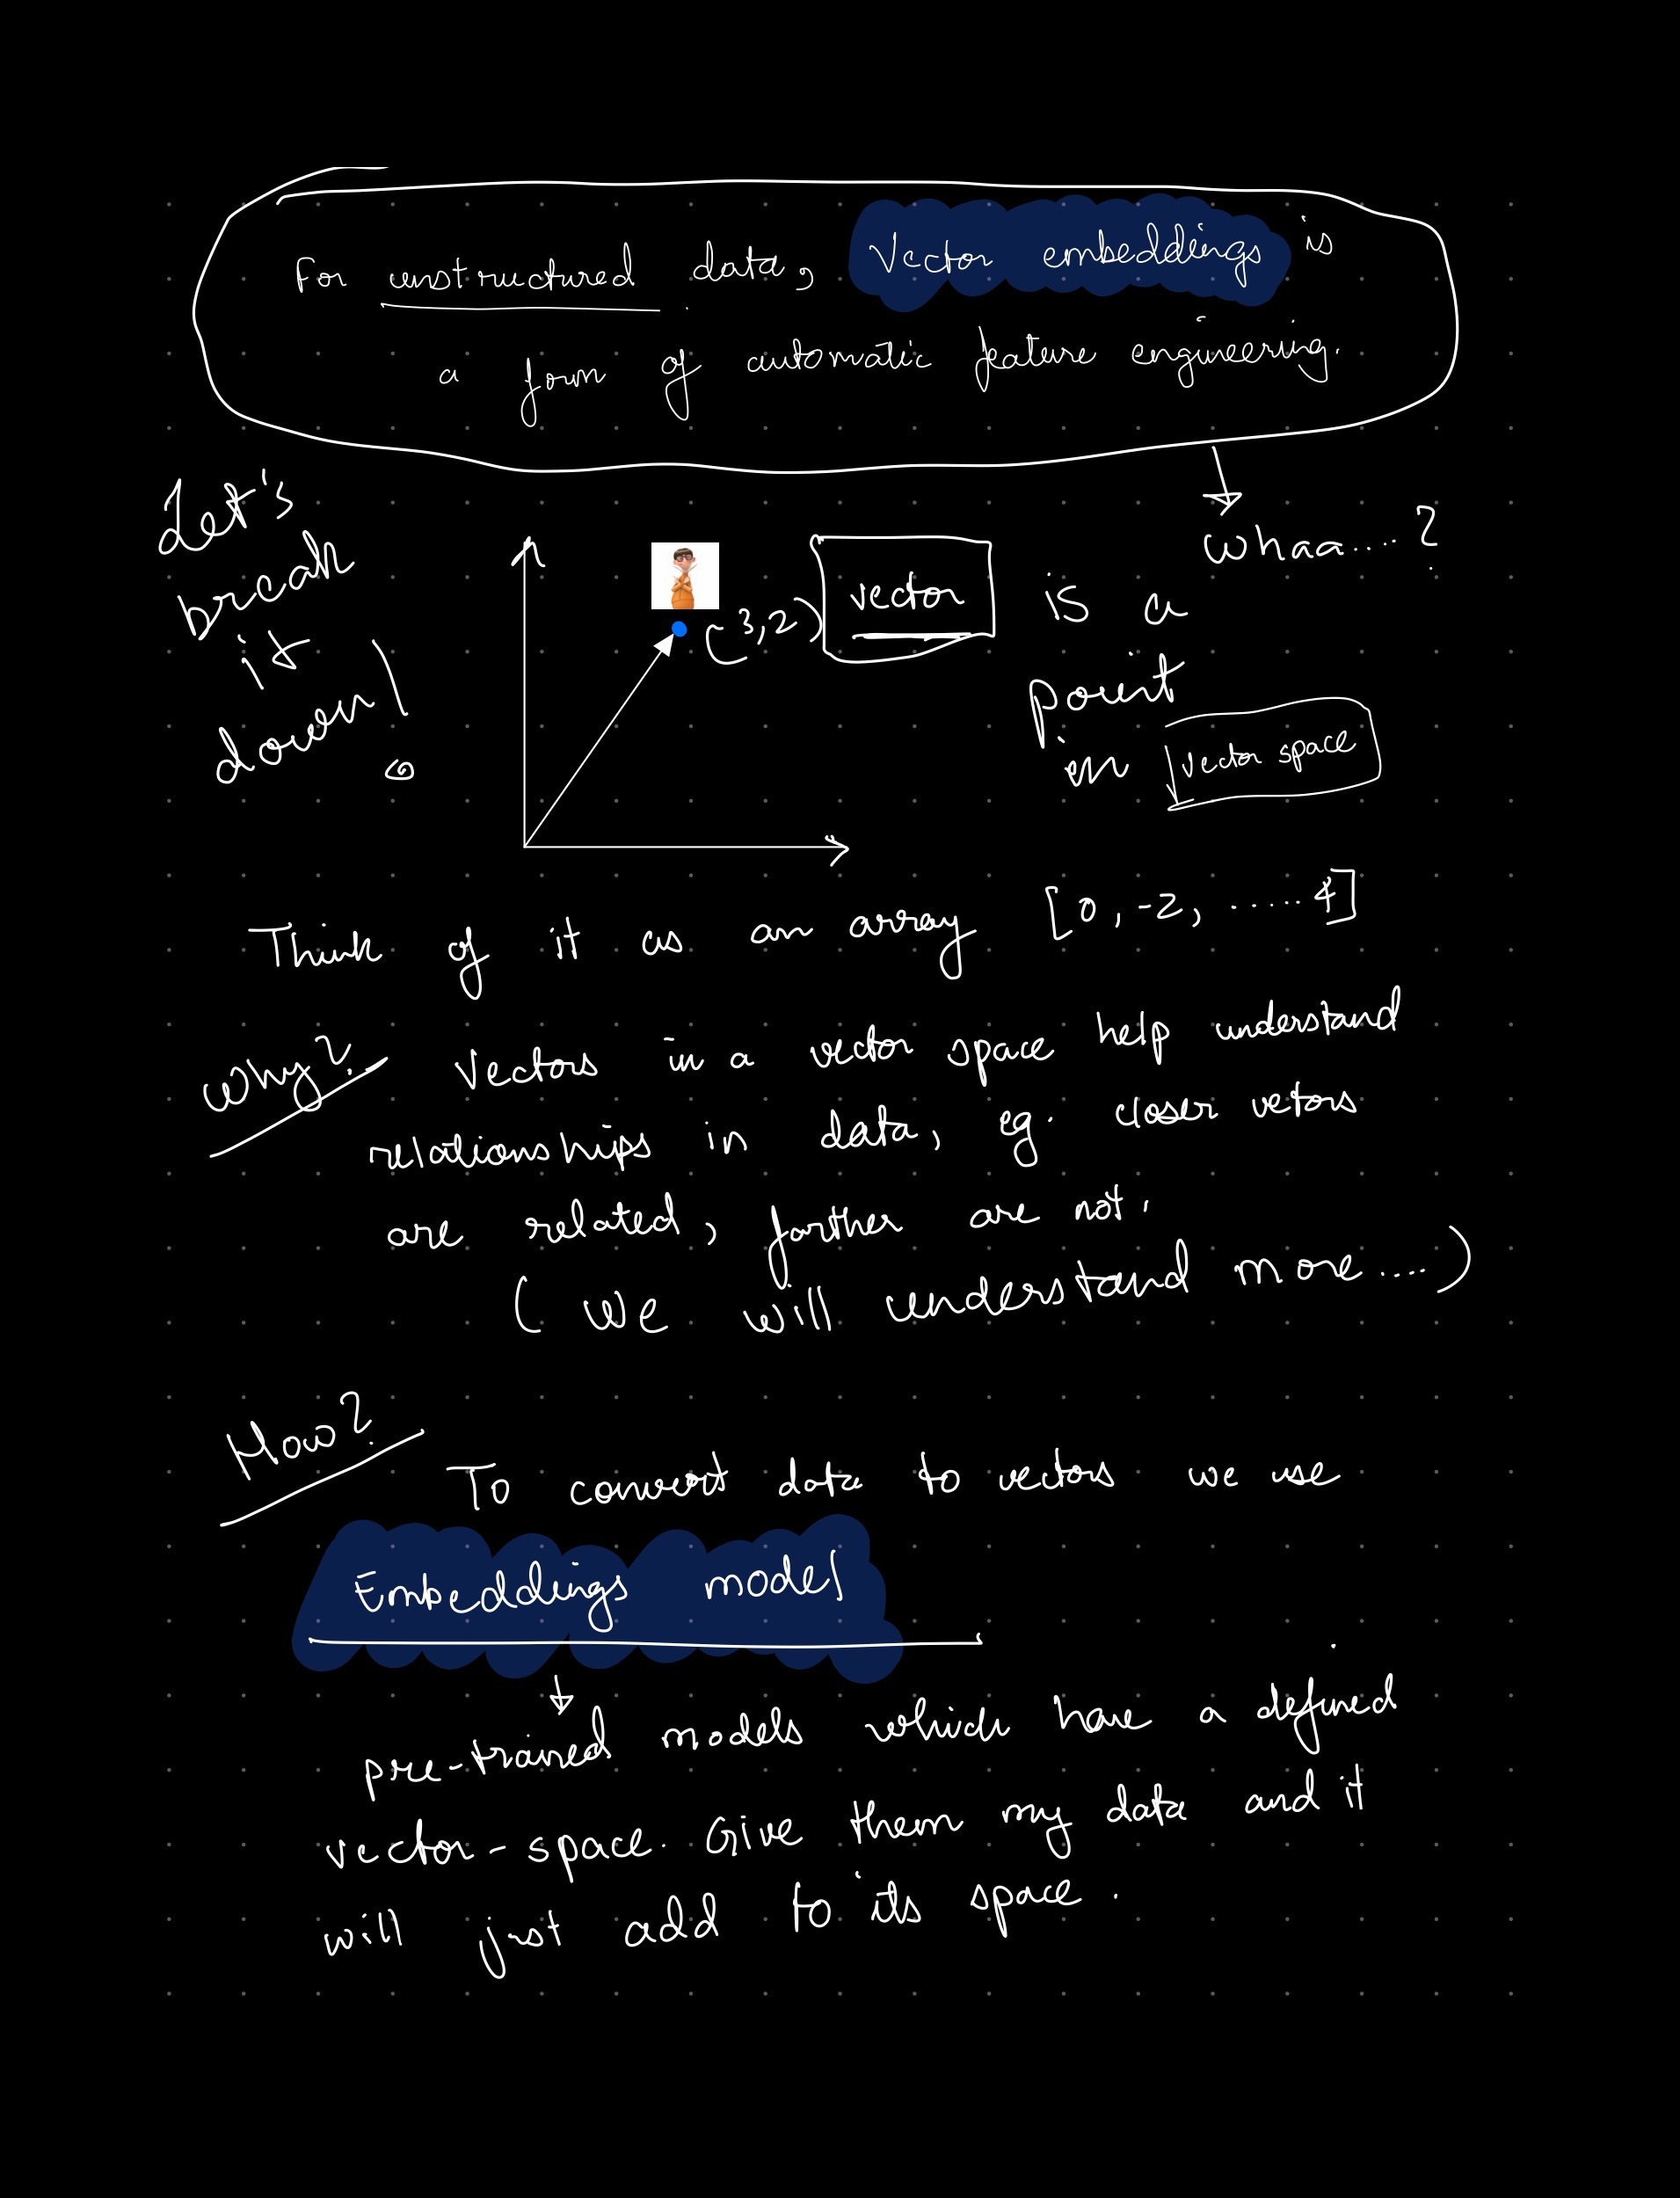 For unstructured data, Vector embeddings is
a form of automatic feature engineering.
whaa....?
Let's
break
it
down!
(3,2)
vector is a
point
in vector space
Think of it as an array [0, -2, ..... 4]
Why? Vectors in a vector space help understand
relationships in data, eg. closer vetors
are related, farther are not.
(We will understand more....)
How?
To convert data to vectors we use
Embeddings model
pre-trained models which have a defined
vector-space. Give them my data and it
will just add to its space.